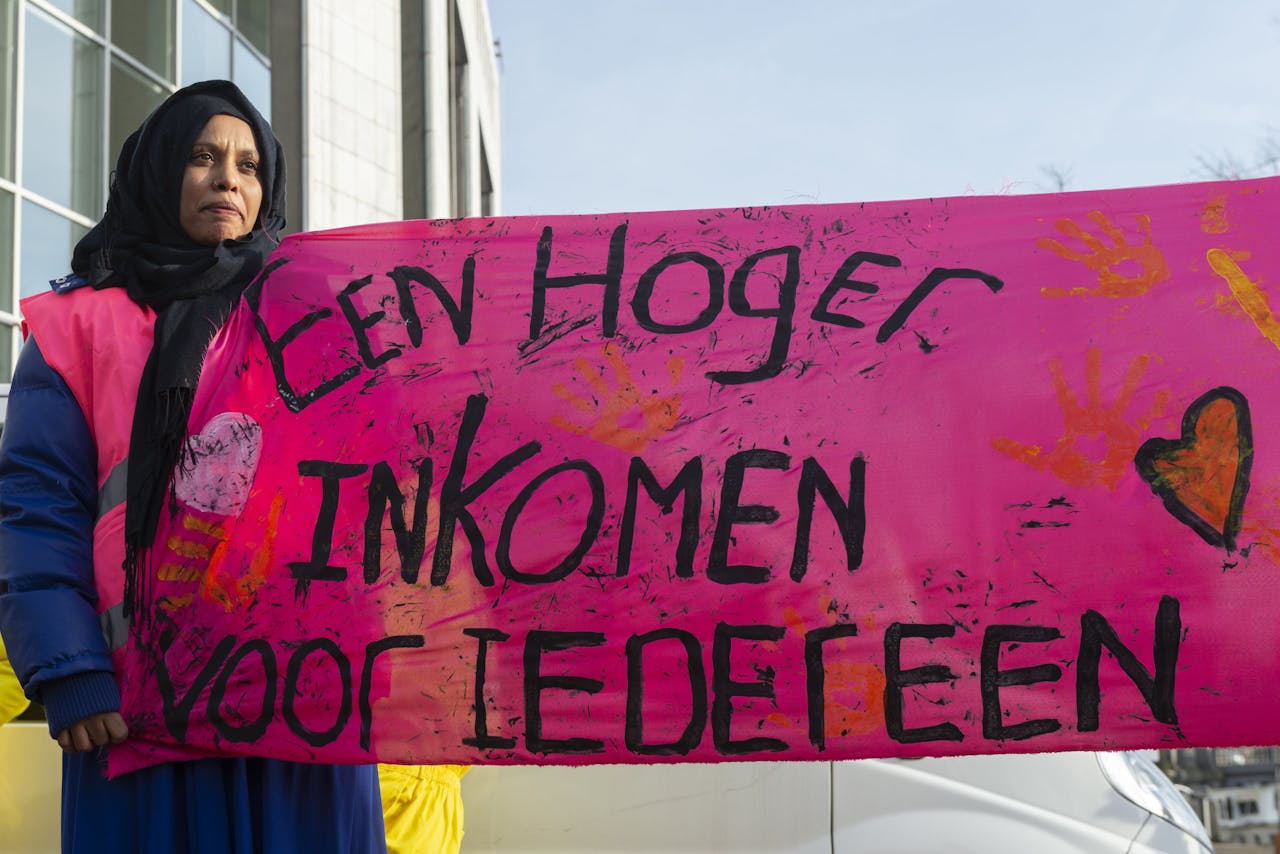 Een Hoger
INKOMEN
Voor IEDEREEN